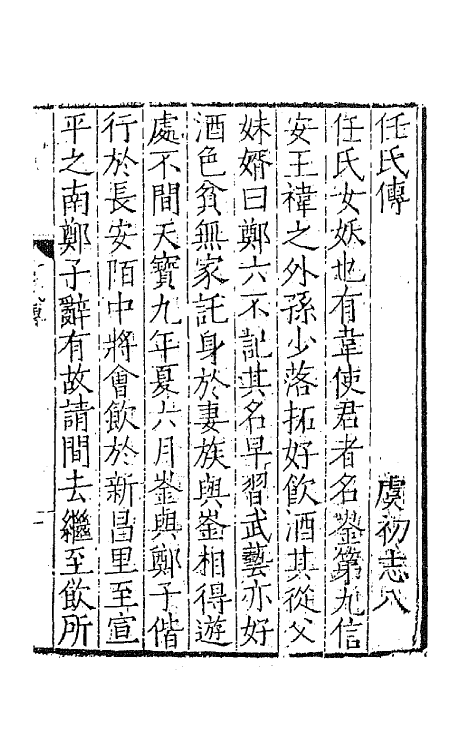 任氏傳 虞初志八
任氏女妖也有韋使君者名崟第九信
安王禕之外孫少落拓好飲酒其從父
妹婿曰鄭六不記其名早習武藝亦好
酒色貧無家託身於妻族與崟相得遊
處不間天寶九年夏六月崟與鄭子偕
行於長安陌中將會飲於新昌里至宣
平之南鄭子辭有故請間去繼至飲所